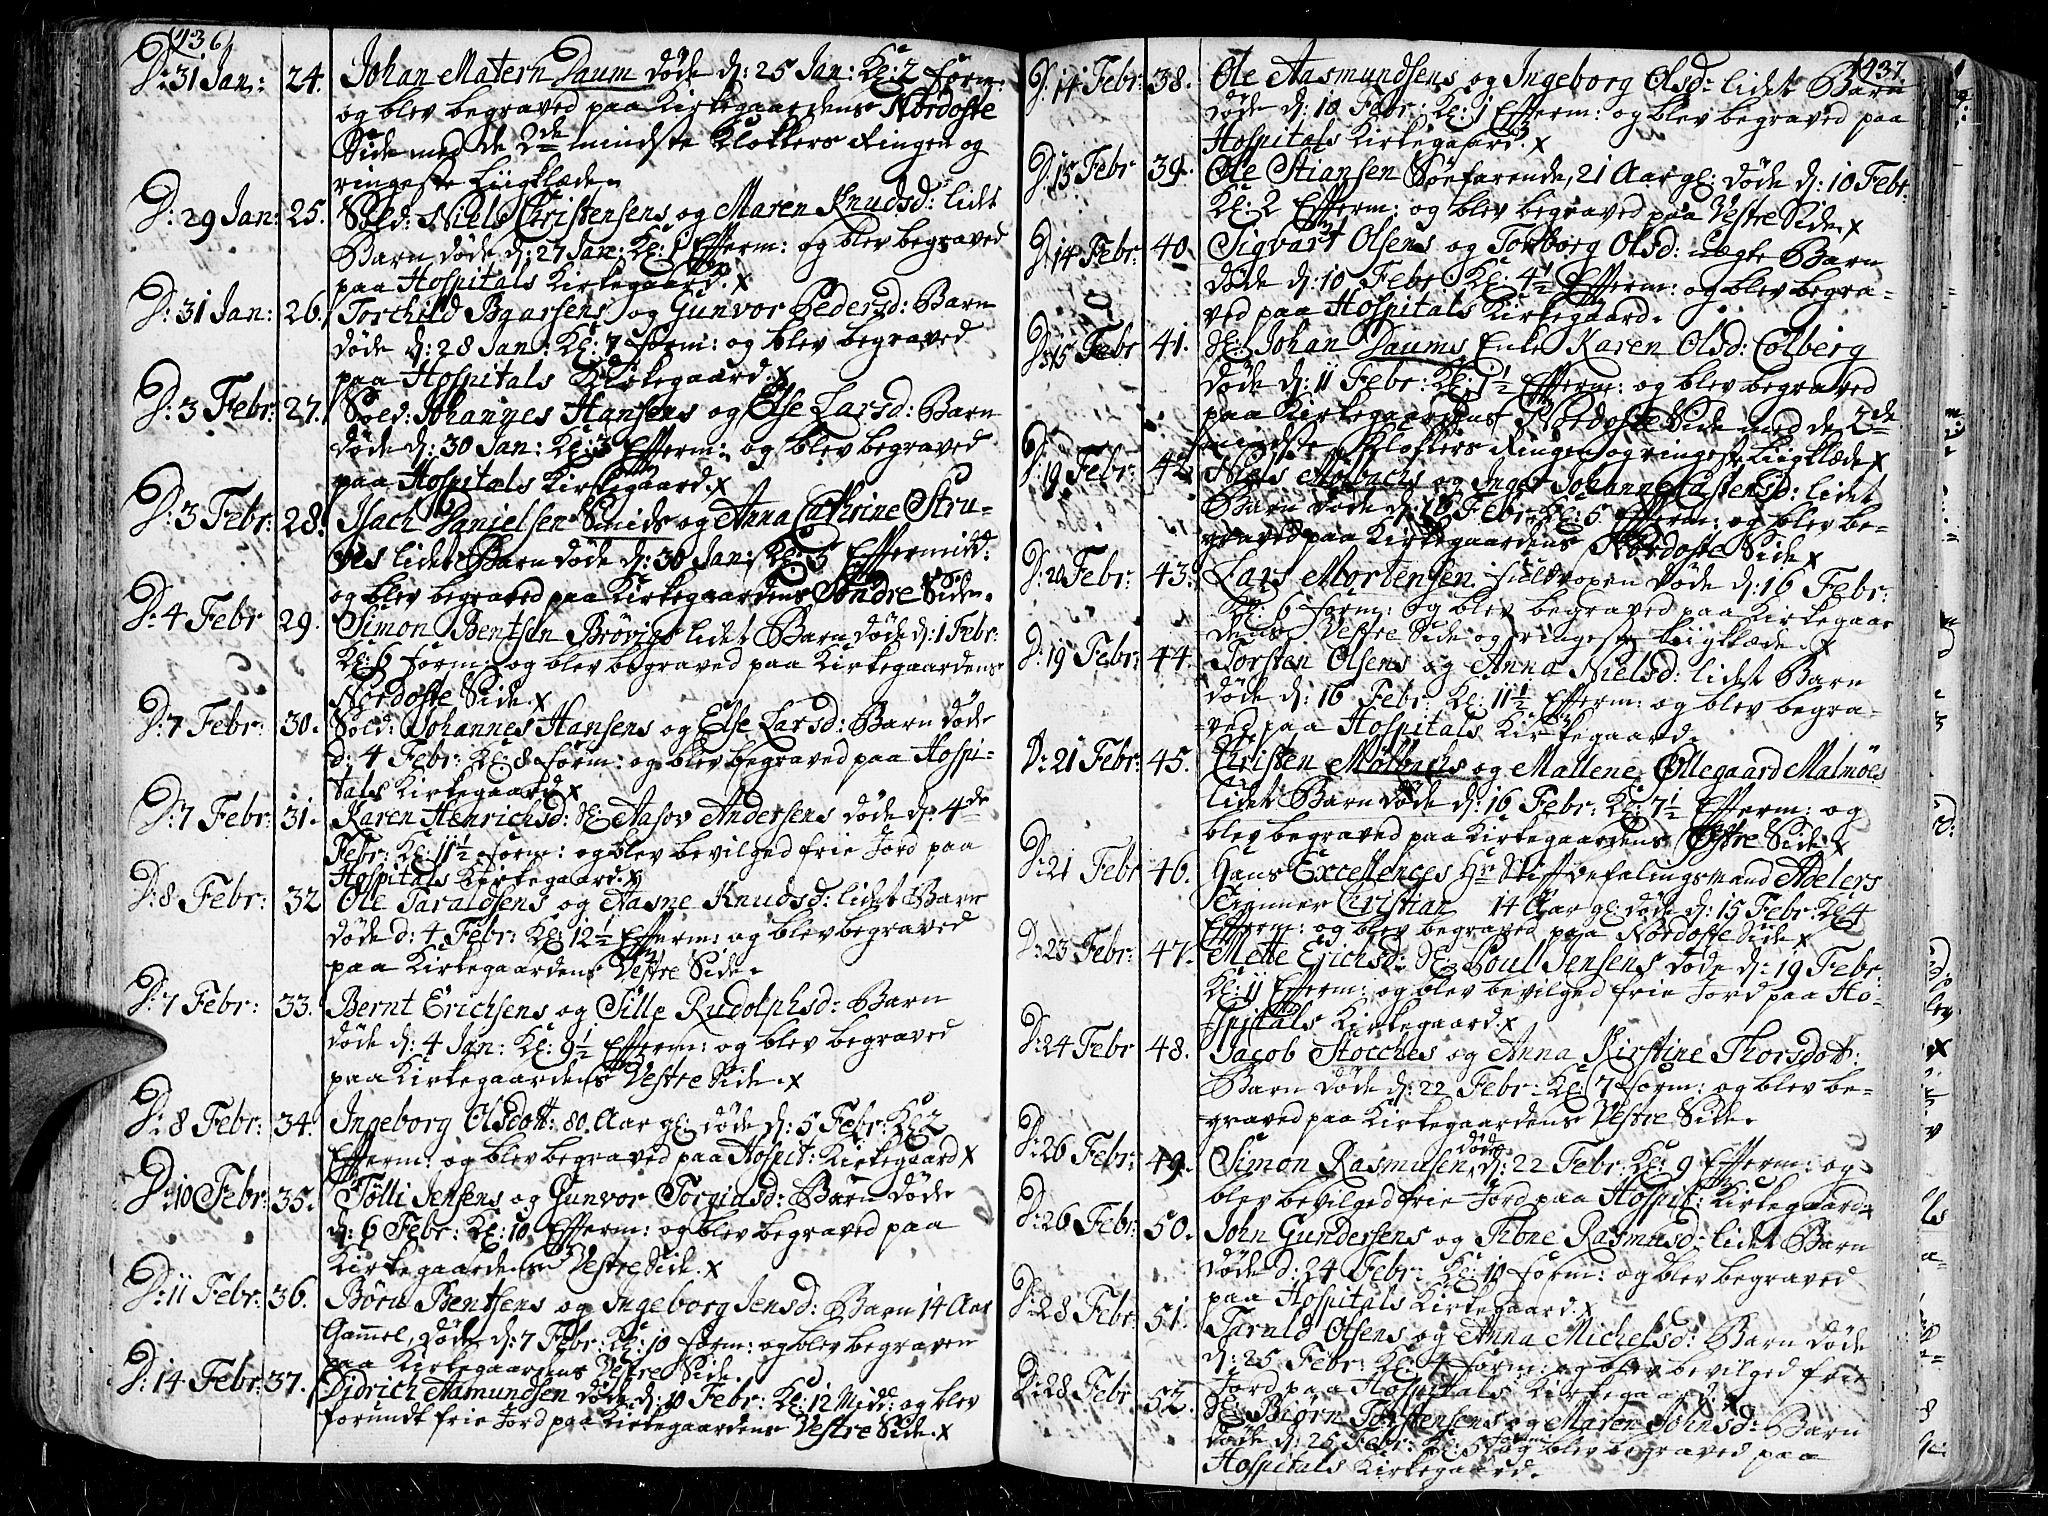 436
D: 31 Jan: 24. Johan Matern Daum døde d: 25 Jan: Kl: 2 form:
og blev begraved paa Kirkegaardens Nordoste
Side med de 2de mindste Klokkers Ringen og
ringeste Liigklæde
D: 29 Jan: 25. Sold: Niels Christensens og Maren Knudsd: lidet
Barn døde d: 27 Jan: Kl: 1 Efferm: og blev begraved
paa Hospitals Kirkegaard. x
D: 31 Jan: 26. Torchild Bgarsens og Gunvor Pedersd: Barn
døde d: 28 Jan: Kl: 7 form: og blev begraved
paa Hospitals Kirkegaard. x
D: 3 Febr: 27. Soed: Johannes Hansens og Else Larsd: Barn
døde d: 30 Jan: Kl: 3 Efferm: og blev begraved
paa Hospitals Kirkegaard. x
D: 3 Febr: 28. Isach Danielsen Smids og Anna Cathrine Stru-
ves lidet Barn døde d: 30 Jan: Kl: 5 Effermidd:
og blev begraved paa Kirkegaardens Søndre Side.
D: 4 Febr 29. Simon Bentsen Brøvigs lidet Barn døde d: 1 Febr:
Kl: 6 form: og blev begraved paa Kirkegaardens
Nordoste Side. x
D: 7 Febr: 30. Sold: Johannes Hansens og Else Larsd: Barn døde
d: 4 Febr: Kl: 8 form: og blev begraved paa Hospi-
tals Kirkegaard x
D: 7 Febr: 31. Karen Henrichsd: Sl: Aasov Andersens døde d: 4de
Febr: Kl: 11½ form: og blev bevilged frie Jord paa
Hospitals Kirkegaard. x
D: 8 Febr: 32 Ole Taraldsens og Aasne Knudsd: lidet Barn
døde d: 4 Febr: Kl: 12½ Efferm: og blev begraved
paa Kirkegaardens Vestre Side.
D: 7 Febr: 33. Bernt Erichsens og Sille Rudolphsd: Barn
døde d: 4 Jan: Kl: 9½ Efferm: og blev begraved
paa Kirkegaardens Vestre Side. x
D: 8 Febr: 34. Ingeborg Olsdott: 80 Aar gl: døde d: 5 Febr: Kl: 2
Efferm: og blev begraved paa Hospit: Kirkegaard x
D: 10 Febr: 35. Tølli Jensens og Gunvor Torgiasd: Barn døde
d: 6 Febr: Kl: 10 Efferm: og blev begraved paa
Kirkegaardens Vestre Side. x
D: 11 Febr: 36. Børu Bentsens og Ingeborg Jensd: Barn 14 Aar
Gammel, døde d: 7 Febr: Kl: 10 form: og blev begraven
paa Kirkegaardens Vestre Side.
D: 14 Febr: 37. Didrich Aamundsen døde d: 10 Febr: Kl: 12 Midd: og blev
forundt frie Jord paa Kirkegaardens Vestre Side. x
437.
D: 14 Febr: 38. Ole Aasmundsens og Ingeborg Olsd: lidet Barn
døde d: 10 Febr: Kl: 1 Efferm: og blev begraved paa
Hospitals Kirkegaard. x
D: 15 Febr 39. Ole Stiansen Søefarende, 21 Aar gl: døde d: 10 Febr:
Kl: 2 Efferm: og blev begraved paa Vestre Side. x
D: 14 Febr: 40. Sigvart Olsens og Torborg Olsd: uegte Barn
døde d: 10 Febr Kl: 4½ Efferm: og blev begra-
ved paa Hospitals Kirkegaard.
D: 15 Febr 41. Sl: Johan Daums Enke Karen Olsd: Colberg
døde d: 11 Febr: Kl: 1½ Efferm: og blev begraved
paa Kirkegaardens Nordoste Side med de 2de
mindste Klokkers Ringen og ringeste Liigklæde x
D: 19 Febr: 42. Niels Mølbachs og Inger Johanne Castensd: lidet
Barn døde d: 16 Febr: Kl: 5 Efferm: og blev be-
graved paa Kirkegaardens Nordoste Side x
D: 20 Febr: 43. Lars Mortensen døde d: 16 Febr:
Kl: 6 form: og blev begraved paa Kirkegaar
dens Vestre Side og ringeste Liigklæde. x
D: 19 Febr: 44. Torsten Olsens og Anna Nielsd: lidet Barn
døde d: 16 Febr: Kl: 11½ Efferm: og blev begra-
ved paa Hospitals Kirkegaard.
D: 21 Febr: 45. Christen Mølbachs og Mallene Øllegaard Malmøes
lidet Barn døde d: 16 Febr: Kl: 7½ Efferm: og
blev begraved paa Kirkegaardens Østre Side. x
D: 21 Febr 46. Hans Excellences Hr Stiftbefalingsmand Adelers
Tienner Christian 14 Aar gl døde d: 15 Febr: Kl 4
Efferm: og blev begraved paa Nordoste Side x
D: 23 Febr: 47. Mette Erichsd: Sl: Poul Jensens døde d: 19 Febr:
Kl: 11 Efferm: og blev bevilged frie Jord paa Ho-
spitals Kirkegaard. x
D: 24 Febr 48. Jacob Stocches og Anna Kirstine Thorsdott:
Barn døde d: 22 Febr: Kl: 7 form: og blev be-
graved paa Kirkegaardens Vestre Side.
D: 26 Febr: 49. Simon Rasmusen døde d: 22 Febr: Kl: 9 Efferm: og
blev bevilged frie Jord paa Hospit: Kirkegaard x
D: 26 Febr: 50. John Gundersens og Tibne Rasmusd: lidet Barn
døde d: 24 Febr: Kl: 10 form: og blev begraved
paa Hospitals Kirkegaard. x
D: 28 Febr: 51. Tarald Olsens og Anna Michelsd: Barn døde
d: 25 Febr: Kl: 4 form: og blev bevilged frie
Jord paa Hospitals Kirkegaard. x
D: 28 Febr 52. Sl: Biørn Torstensens og Maren Johnsd: Barn
døde d: 25 Febr: Kl: 5 form og blev begraved paa
Hospitals Kirkegaard.